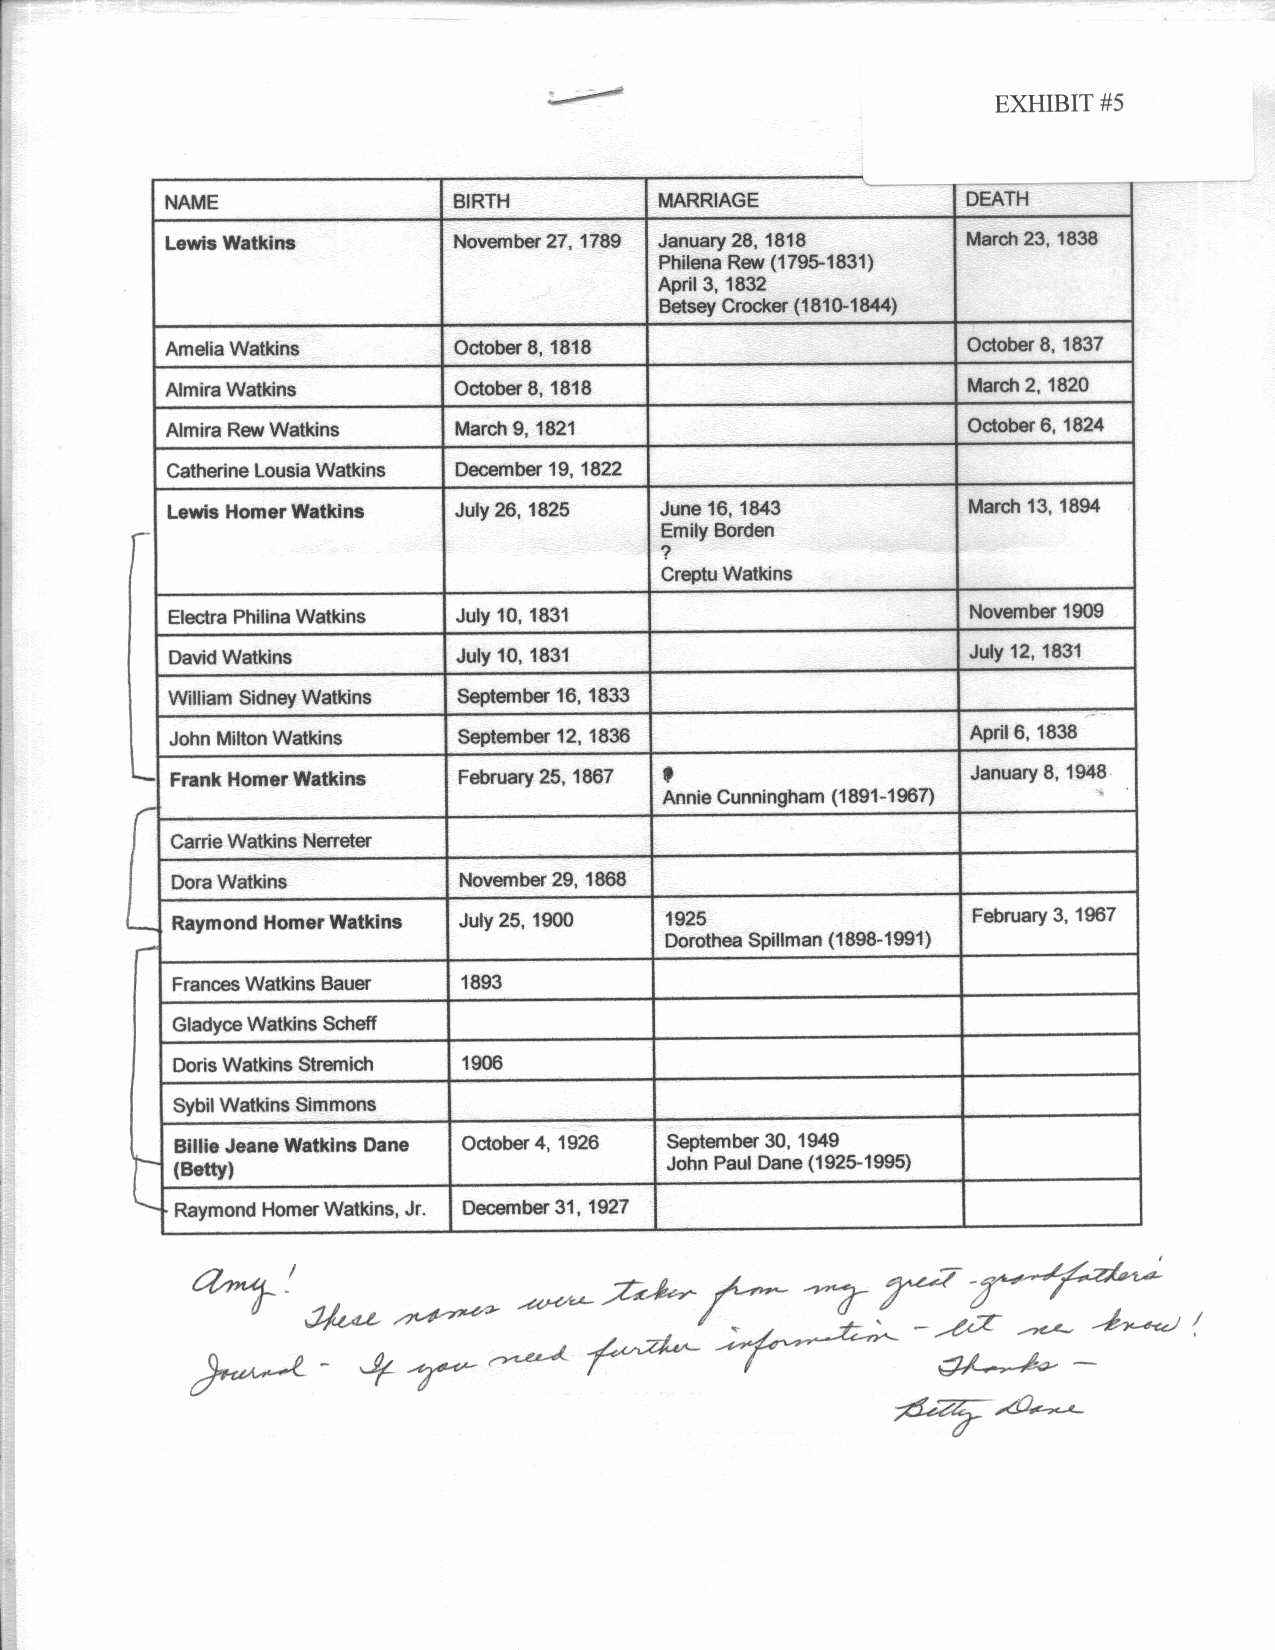 EXHIBIT #5
NAME BIRTH MARRIAGE DEATH
Lewis Watkins November 27, 1789 January 28, 1818 March 23, 1838
Philena Rew (1795-1831)
April 3, 1832
Betsey Crocker (1810-1844)
Amelia Watkins October 8, 1818 October 8, 1837
Almira Watkins October 8, 1818 March 2, 1820
Almira Rew Watkins March 9, 1821 October 6, 1824
Catherine Lousia Watkins December 19, 1822
Lewis Homer Watkins July 26, 1825 June 16, 1843 March 13, 1894
Emily Borden
?
Creptu Watkins
Electra Philina Watkins July 10, 1831 November 1909
David Watkins July 10, 1831 July 12, 1831
William Sidney Watkins September 16, 1833
John Milton Watkins September 12, 1836 April 6, 1838
Frank Homer Watkins February 25, 1867 January 8, 1948
Annie Cunningham (1891-1967)
Carrie Watkins Nerreter
Dora Watkins November 29, 1868
Raymond Homer Watkins July 25, 1900 1925 February 3, 1967
Dorothea Spillman (1898-1991)
Frances Watkins Bauer 1893
Gladyce Watkins Scheff
Doris Watkins Stremich 1906
Sybil Watkins Simmons
Billie Jeane Watkins Dane October 4, 1926 September 30, 1949
(Betty) John Paul Dane (1925-1995)
Raymond Homer Watkins, Jr. December 31, 1927
Amy!
These names were taken from my great-grandfather's
Journal - If you need further information - let me know!
Thanks -
Betty Dane